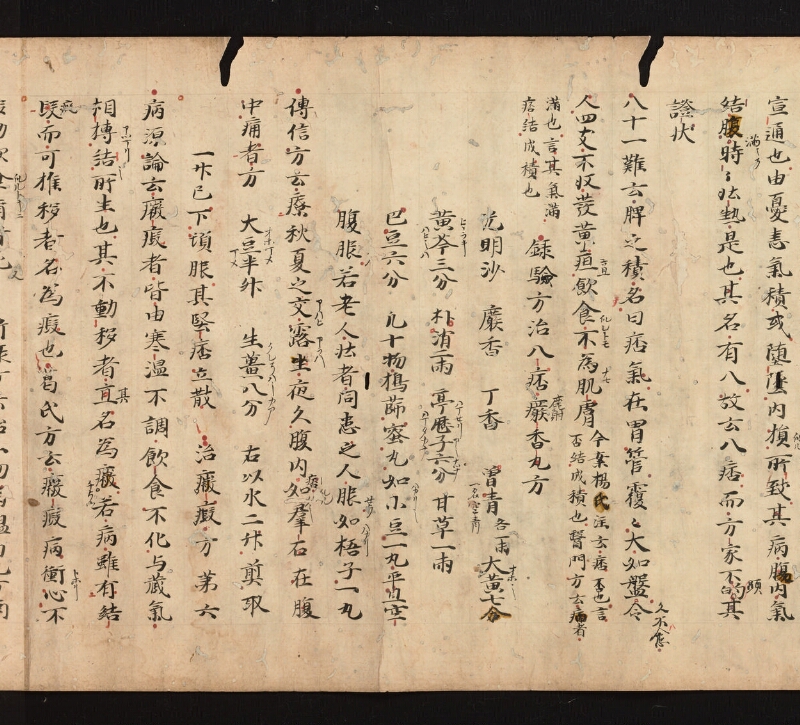 宣通也由憂恚氣積或随墜内損所致其病腹内氣
結脹時〻壮熱是也其名有八故云八痞而方家不的顕其
證状
八十一難云脾之積名曰痞氣在胃管覆〻大如盤令
人四支不収發黄疸飲食不為肌膚 今案楊氏注云痞否也言
否結成積也醫門方云痞者
満也言其氣満
痞結成積也 録驗方治八痞麝香丸方
光明沙 麝香 丁香 曽青各一兩 大黄七分
黄芩三分 朴消一兩 亭歴子六分 甘草一兩
巴豆六分 凡十物搗篩蜜丸如小豆一丸平旦空
腹脹若老人壮者同患之人脹如梧子一丸
傳信方云療秋夏之交露坐夜久腹内如群石在腹
中痛者方 大豆半升 生薑八分 右以水二升煎取
一升已下頓脹其堅痞立散 治癥瘕方 第六
病源論云癥瘕者皆由寒温不調飲食不化与蔵氣
相搏結所生也其不動移者直名為癥若病雖有結
瘕而可推移者名為瘕也葛氏方云癥瘕病衝心不